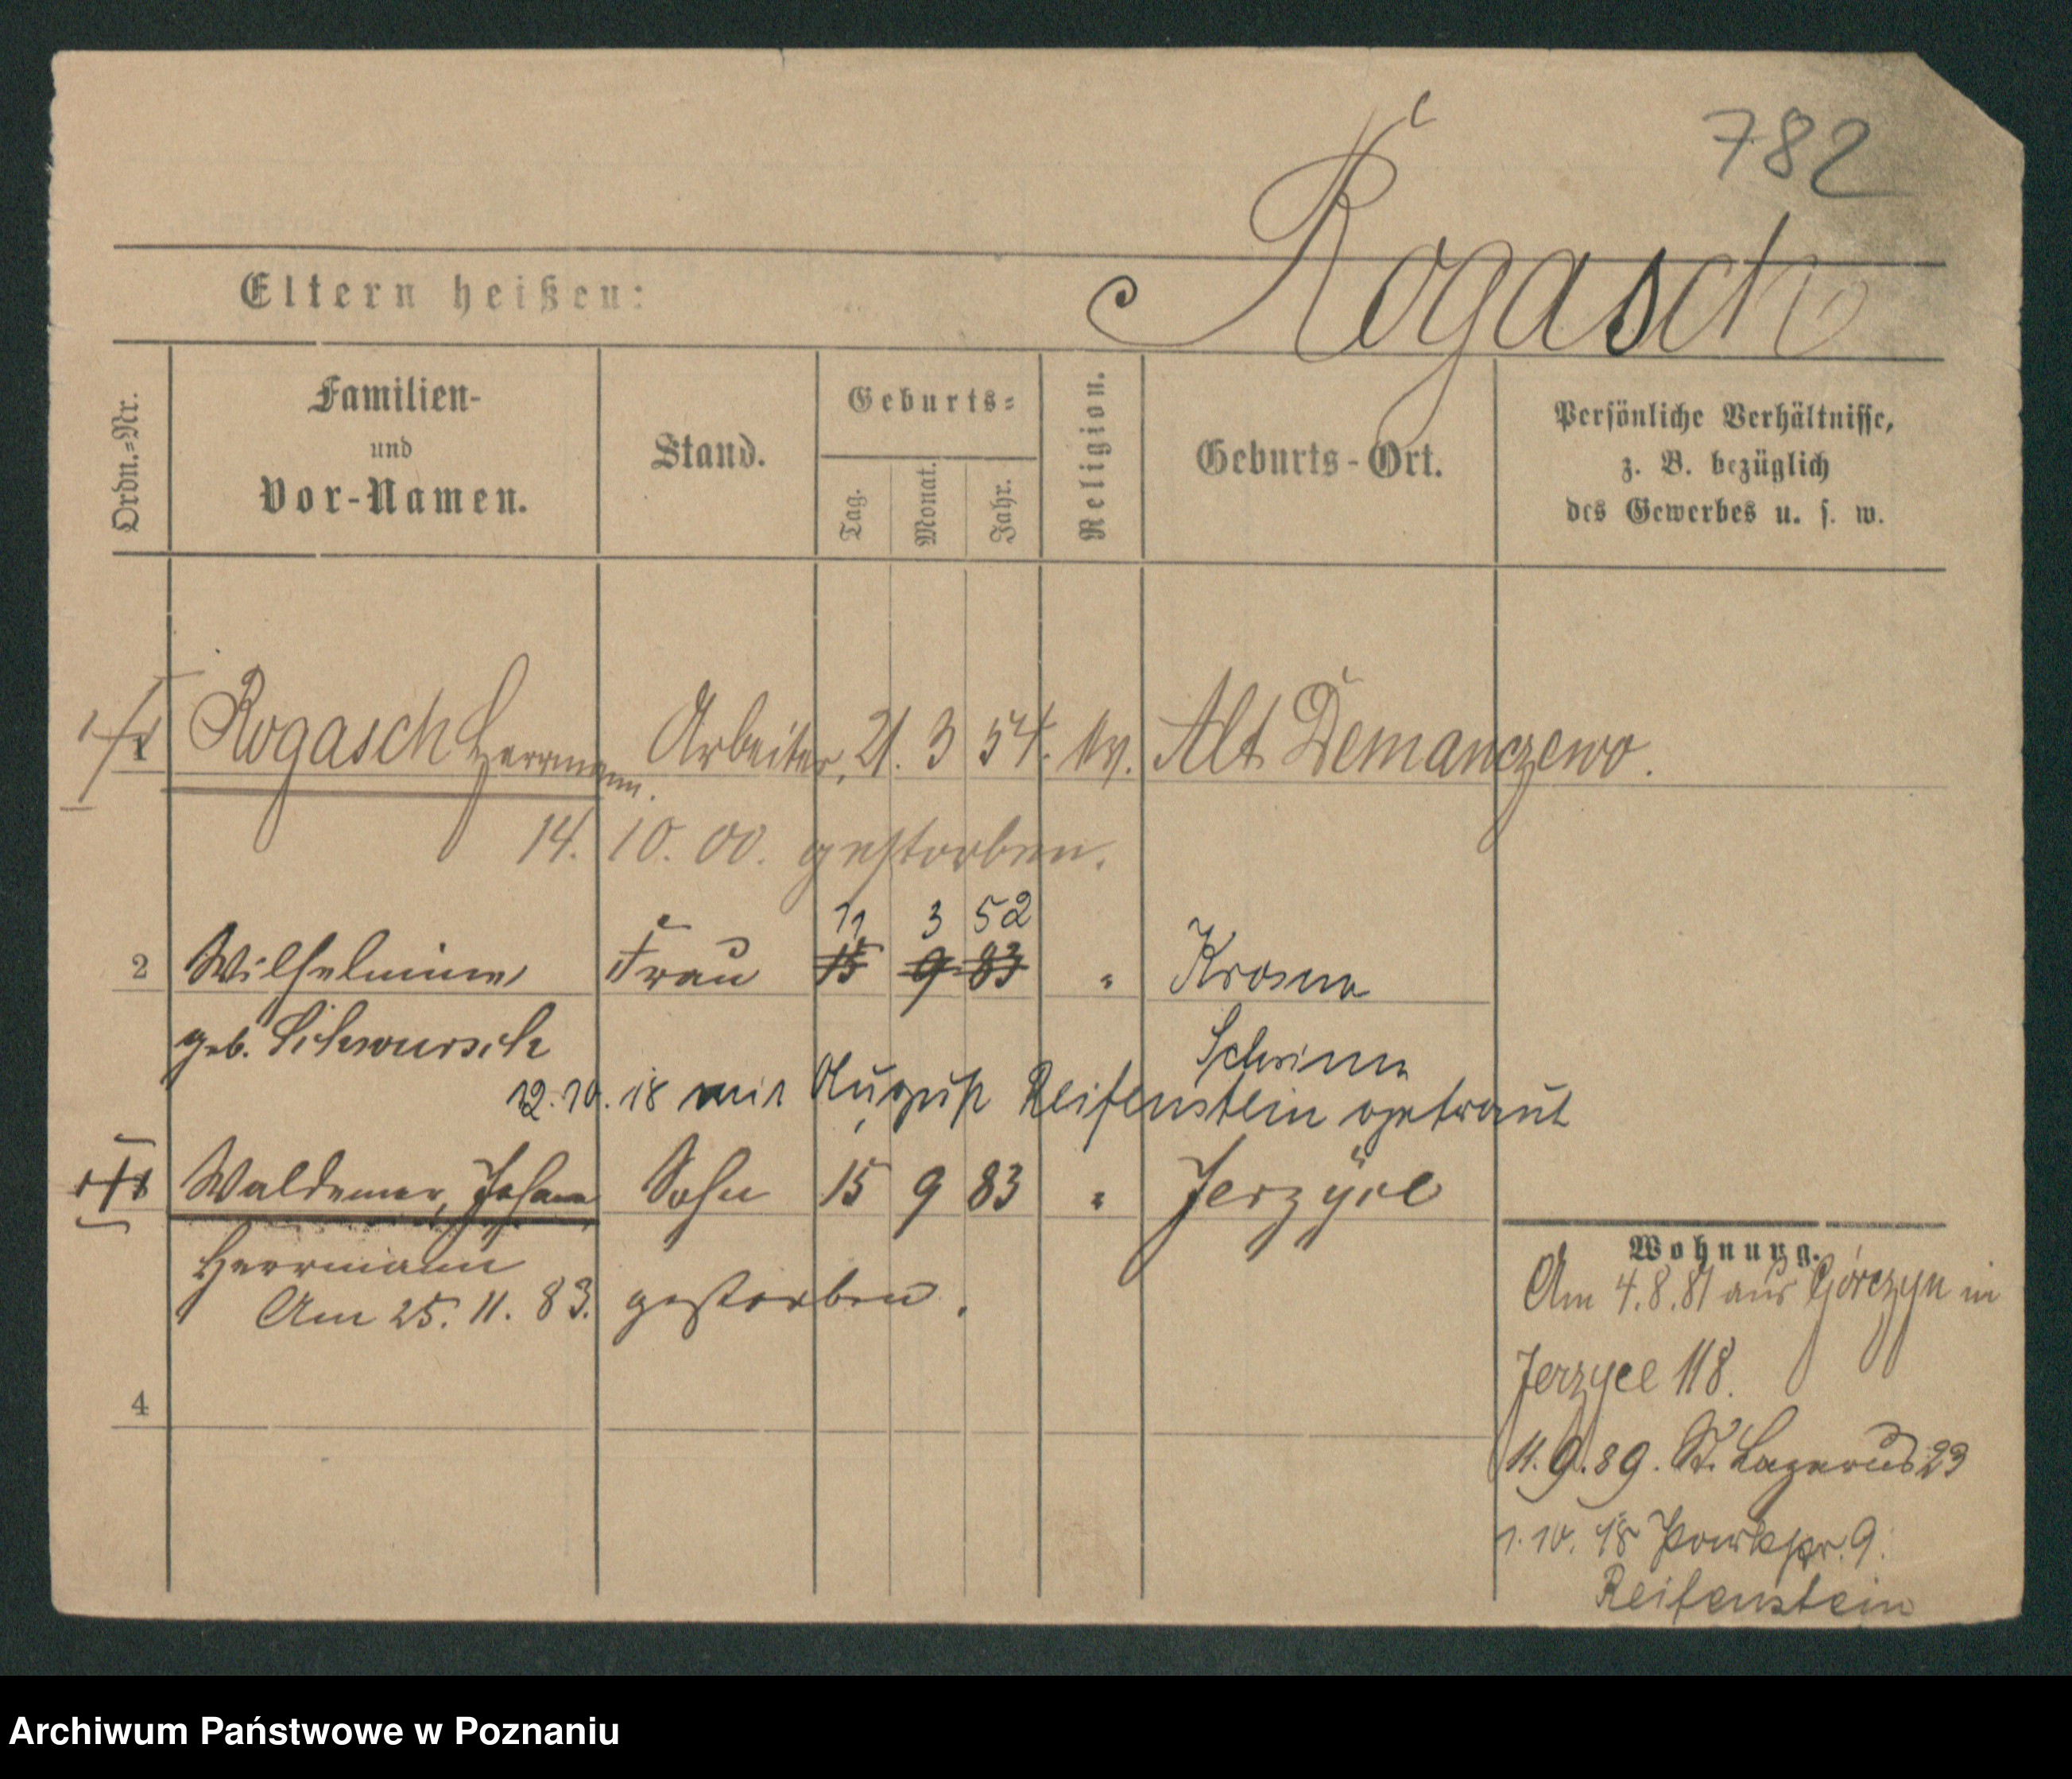 782
Rogasch
Eltern heißen:
Ordn.=Nr.
Familien-
und
Vor-Namen.
Stand.
Geburts=
Tag.
Monat.
Jahr.
Religion.
Geburts-Ort.
Persönliche Verhältnisse,
z. B. bezüglich
des Gewerbes u. s. w.
1 Rogasch Herrmann. Arbeiter. 21. 3 54. ev. Alt Demanczewo.
14. 10. 00. gestorben.
11 3 52
2 Wilhelmine Frau 15 9 83 " Krosno
geb. Schwursch
Schrimm
12.10.18 mit August Reifenstein getraut
Waldemar, Johann Sohn 15 9 83 " Jerzyce
Herrmann
Am 25. 11. 83. gestorben.
4
Wohnung.
Am 4.8.81 aus Górczyn in
Jerzyce 118.
11.9.89. St. Lazarus 23
1.10.18 Parkstr. 9.
Reifenstein
Archiwum Państwowe w Poznaniu